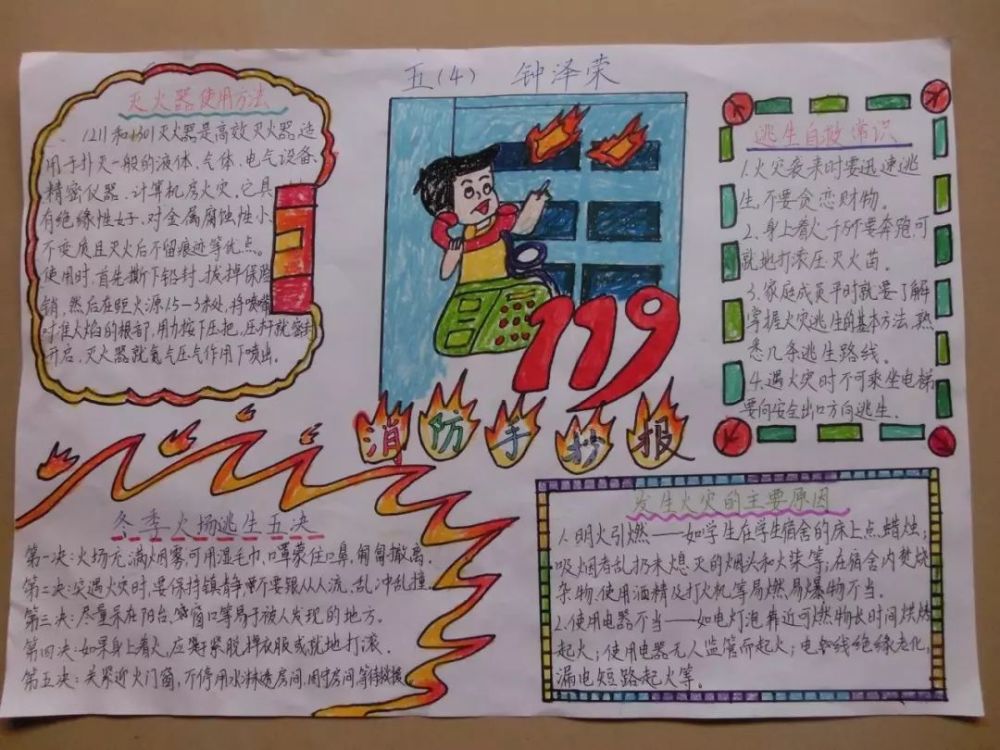 五(4) 钟泽荣
灭火器使用方法
1211和1301灭火器是高效灭火器.适
用于扑灭一般的液体.气体.电气设备.
精密仪器.计算机房火灾.它具
有绝缘性好.对金属腐蚀性小.
不变质且灭火后不留痕迹等优点。
使用时.首先撕下铅封.拔掉保险
销,然后在距火源1.5-3米处,将喷嘴
对准火焰的根部,用力按下压把,压杆就
开启,灭火器就氮气压气作用下喷出.
119
消防手抄报
逃生自救常识
1.火灾袭来时要迅速逃
生,不要贪恋财物。
2.身上着火,千万不要奔跑可
就地打滚压灭火苗。
3.家庭成员平时就要了解
掌握火灾逃生的基本方法,熟
悉几条逃生路线。
4.遇火灾时不可乘坐电梯
要向安全出口方向逃生.
冬季火场逃生五决
第一决:火场充满烟雾,可用湿毛巾,口罩蒙住口鼻,匍匐撤离.
第二决:突遇火灾时,要保持镇静,不要跟人人流.乱冲乱撞.
第三决:尽量呆在阳台.窗口等易于被人发现的地方。
第四决:如果身上着火,应赶紧脱掉衣服或就地打滚.
第五决:关紧迎火门窗,不停用水淋透房间,等待救援。
发生火灾的主要原因
1.明火引燃——如学生在学生宿舍的床上点蜡烛;
吸烟者乱扔未熄灭的烟头和火柴等;在宿舍内焚烧
杂物.使用酒精及打火机等易燃易爆物不当.
2.使用电器不当——如电灯泡靠近可燃物长时间烘烤
起火;使用电器无人监管而起火;电器线绝缘老化,
漏电短路起火等。